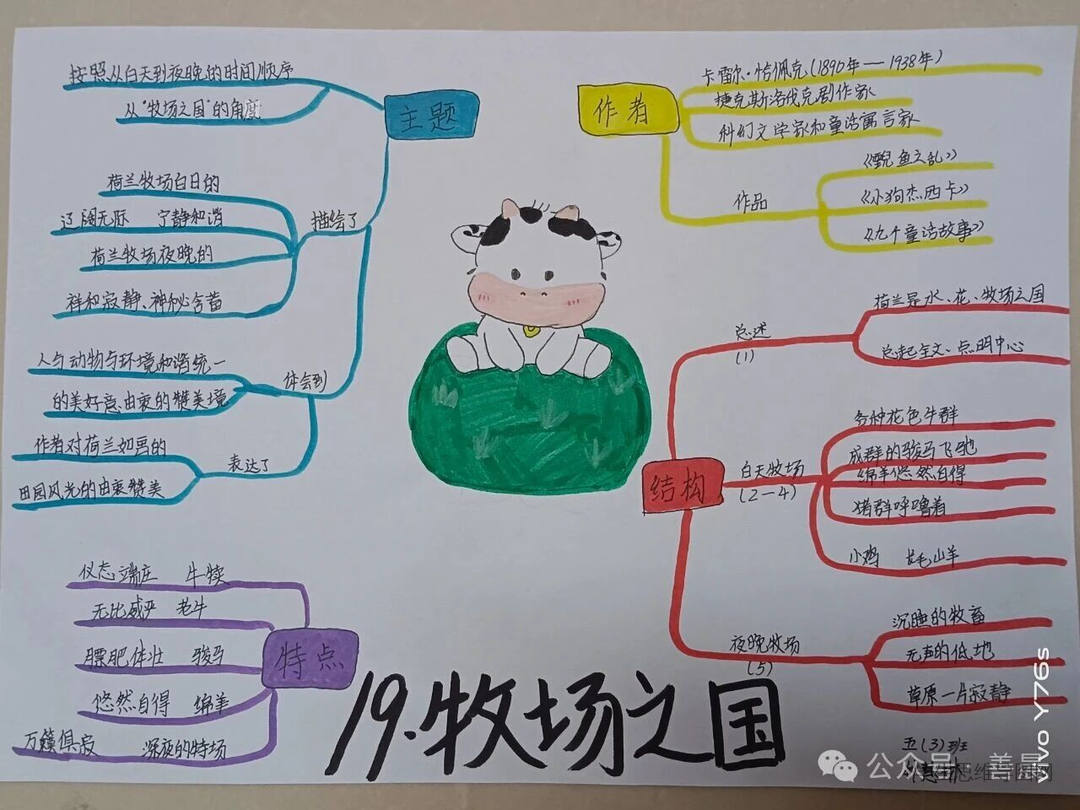 按照从白天到夜晚的时间顺序
从“牧场之国”的角度
主题
荷兰牧场白日的
辽阔无际 宁静和谐
荷兰牧场夜晚的
祥和寂静、神秘含蓄
描绘了
人与动物与环境和谐统一
的美好意由衷的赞美境
体会到
作者对荷兰如画的
田园风光的由衷赞美
表达了
作者
卡雷尔·恰佩克(1890年——1938年)
捷克斯洛伐克剧作家
科幻文学家和童话寓言家
作品
《鲵鱼之乱》
《小狗杰西卡》
《九个童话故事》
结构
总述
(1)
荷兰是水、花、牧场之国
总起全文、点明中心
白天牧场
(2—4)
各种花色牛群
成群的骏马飞驰
绵羊悠然自得
猪群呼噜着
小鸡 长毛山羊
夜晚牧场
(5)
沉睡的牧畜
无声的低地
草原一片寂静
特点
仪态端庄 牛犊
无比威严 老牛
膘肥体壮 骏马
悠然自得 绵羊
万籁俱寂 深夜的牧场
19.牧场之国
五(3)班
公众号 善晨
vivo Y76s